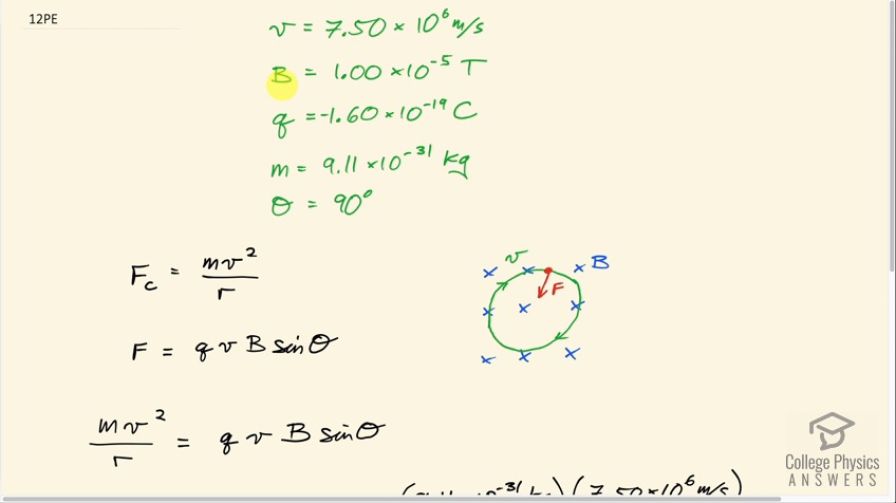 12PE
v = 7.50 × 10⁶ m/s
B = 1.00 × 10⁻⁵ T
q = -1.60 × 10⁻¹⁹ C
m = 9.11 × 10⁻³¹ kg
θ = 90°
F_c = mv²/r
v
B
F
F = q v B sinθ
mv²/r = q v B sinθ
10⁻³¹ kg)(7.50×10⁶ m/s)
College Physics
ANSWERS